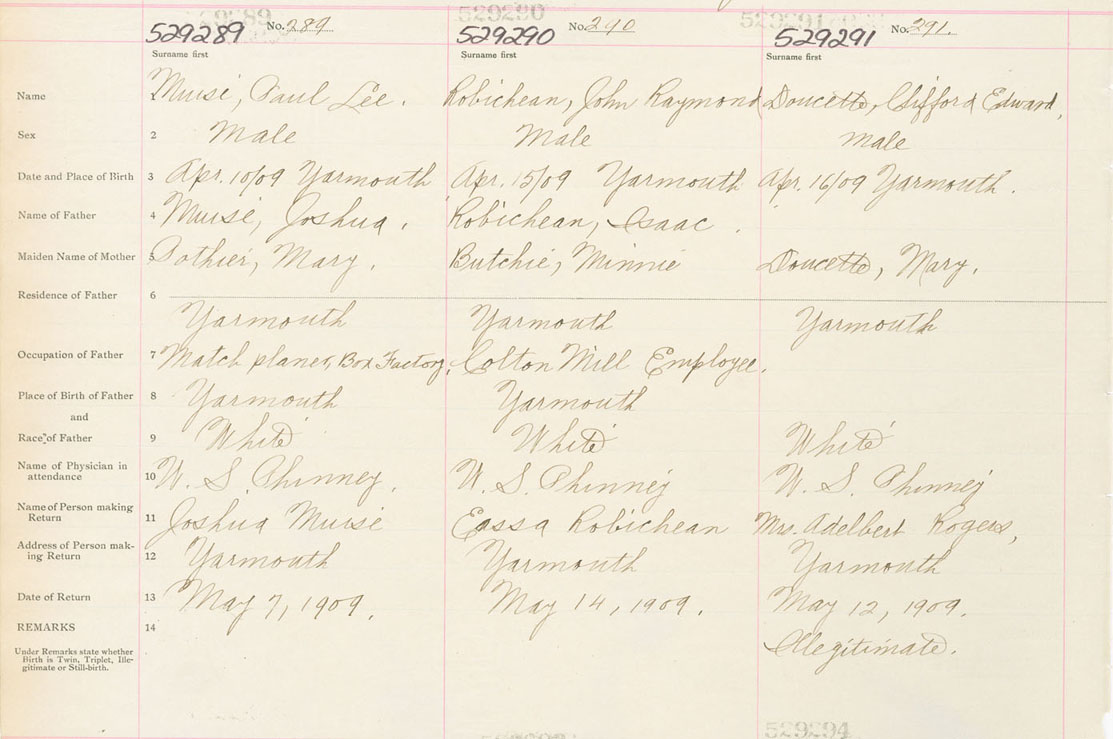 529289 529290 529291
529289 No. 289 529290 No. 290 529291 No. 291.
Surname first Surname first Surname first
Name 1 Muise, Paul Lee. Robichean, John Raymond Doucette, Clifford Edward,
Sex 2 Male Male Male
Date and Place of Birth 3 Apr. 10/09 Yarmouth Apr. 15/09 Yarmouth Apr. 16/09 Yarmouth.
Name of Father 4 Muise, Joshua. Robichean, Isaac.
Maiden Name of Mother 5 Pothier, Mary. Butchie, Minnie Doucette, Mary.
Residence of Father 6
Yarmouth Yarmouth Yarmouth
Occupation of Father 7 Match planer, Box Factory. Cotton Mill Employee.
Place of Birth of Father 8 Yarmouth Yarmouth
and
Race of Father 9 White White White
Name of Physician in
attendance 10 W. S. Phinney. W. S. Phinney W. S. Phinney
Name of Person making
Return 11 Joshua Muise Eassa Robichean Mrs. Adelbert Rogers,
Address of Person mak-
ing Return 12 Yarmouth Yarmouth Yarmouth
Date of Return 13 May 7, 1909. May 14, 1909. May 12, 1909.
REMARKS 14
Under Remarks state whether
Birth is Twin, Triplet, Ille-
gitimate or Still-birth.
Illegitimate.
529294